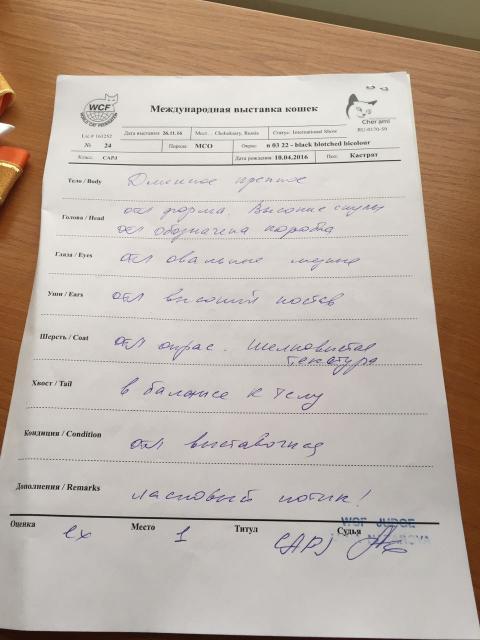 WCF
WORLD CAT FEDERATION
Международная выставка кошек
Cher ami
RU-0170-59
Lic.# 161252
Дата выставки 26.11.16
Мест. Cheboksary, Russia
Статус International Show
№ 24
Порода MCO
Окрас n 03 22 - black blotched bicolour
Класс. CAPJ
Дата рождения 10.04.2016
Пол: Кастрат
Тело / Body
Длинное крепкое
Голова / Head
отл форма. Высокие скулы
отл обозначена коробка
Глаза / Eyes
отл овальные
Уши / Ears
отл высокий постав
Шерсть / Coat
отл окрас. Шелковистая
текстура
Хвост / Tail
в балансе к телу
Кондиция / Condition
отл выставочная
Дополнения / Remarks
ласковый котик!
Оценка ex
Место 1
Титул CAPJ
Судья
WCF JUDGE